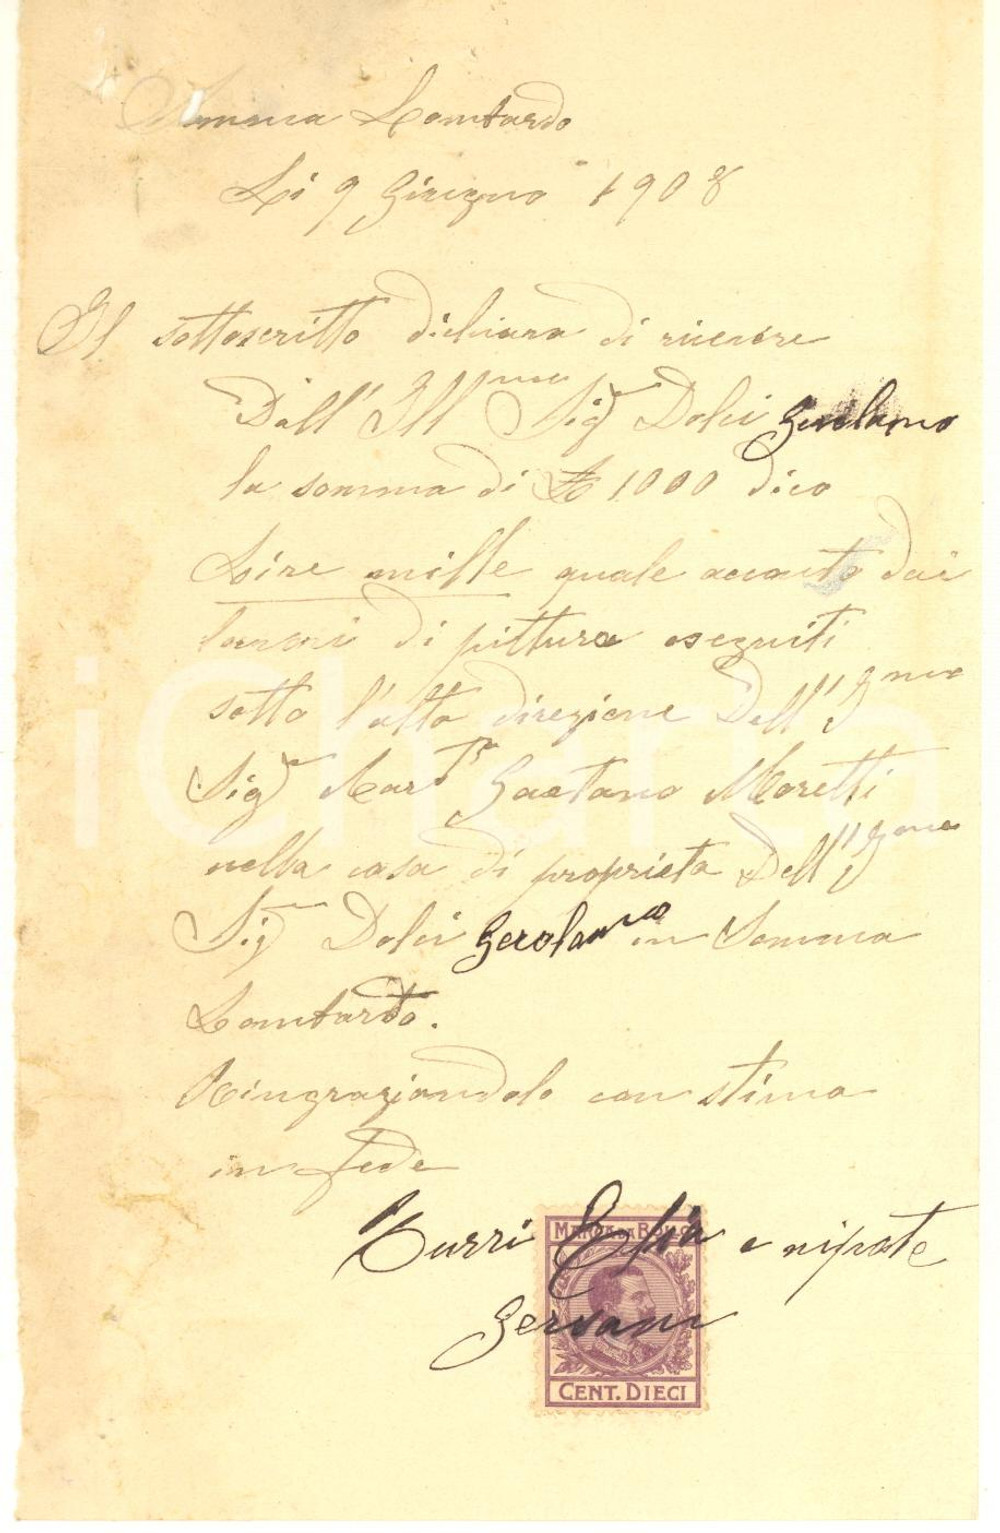 Somma Lombardo
Li 9 Giugno 1908
Il sottoscritto dichiara di ricevere
Dall' Ill.mo Sig.r Dolci Gerolamo
la somma di £ 1000 dico
Lire mille quale acconto dei
lavori di pittura eseguiti
sotto l'alta direzione Dell' I.mo
Sig.r Gaetano Moretti
nella casa di proprieta Dell' I.mo
Sig.r Dolci Gerolamo in Somma
Lombardo.
Ringraziandolo con stima
in fede
Turri Elia e nipote
MARCA DA BOLLO
CENT. DIECI
iCharta